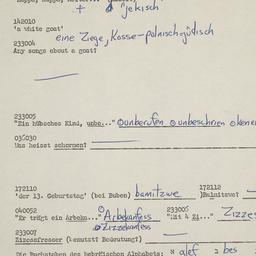 + jekisch
142010
'a white goat'
eine Ziege, Kosse-polnisch-jüdisch
233004
Any songs about a goat?
233005
"Ein hübsches Kind, unbe..." unberufen unbeschrien
035030
Was heisst schormen?
172110 172112
'der 13. Geburtstag' (bei Buben) bamitzwe
040052 233005
"Er trägt ein Arbeka..." Arbekanfess "Mit 4 Zi..." Zizzes
Zizzekanfess
233007
Zizessfresser (benutzt? Bedeutung?)
Die Buchstaben des hebräischen Alphabets: א alef ב bes